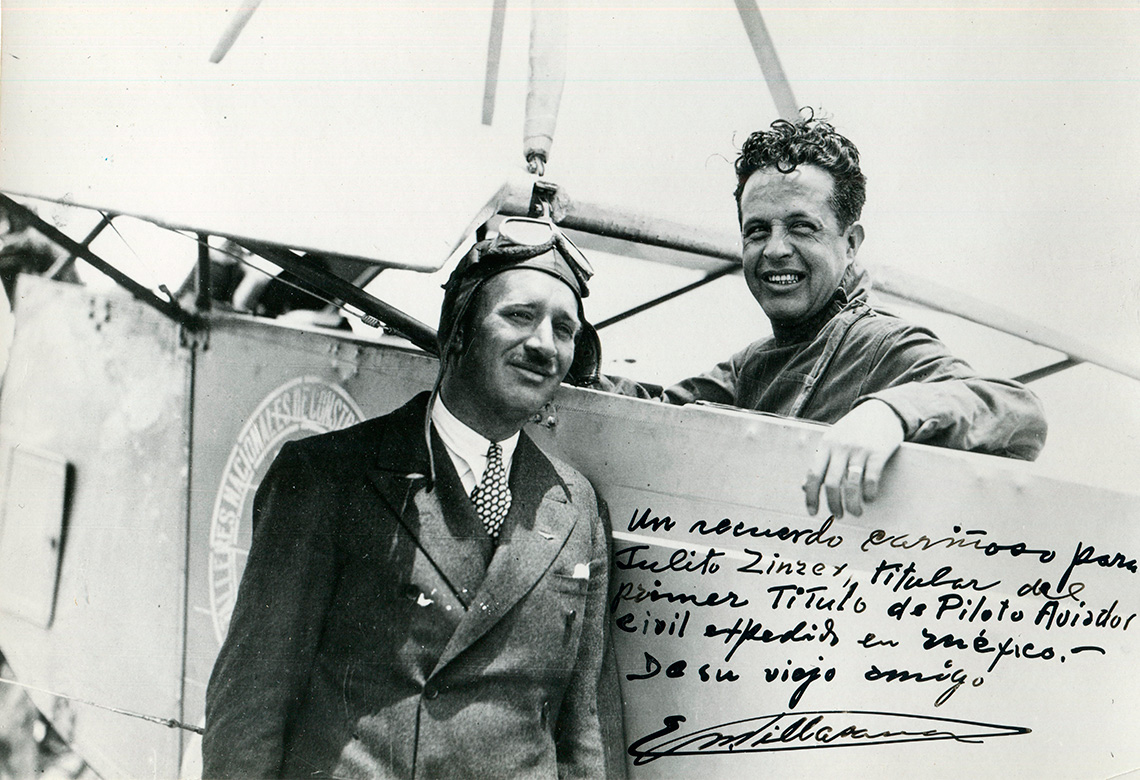 TALLERES NACIONALES DE CONST
Un recuerdo cariñoso para
Julito Zinzer, titular del
primer Titulo de Piloto Aviador
civil expedido en méxico.-
De su viejo amigo